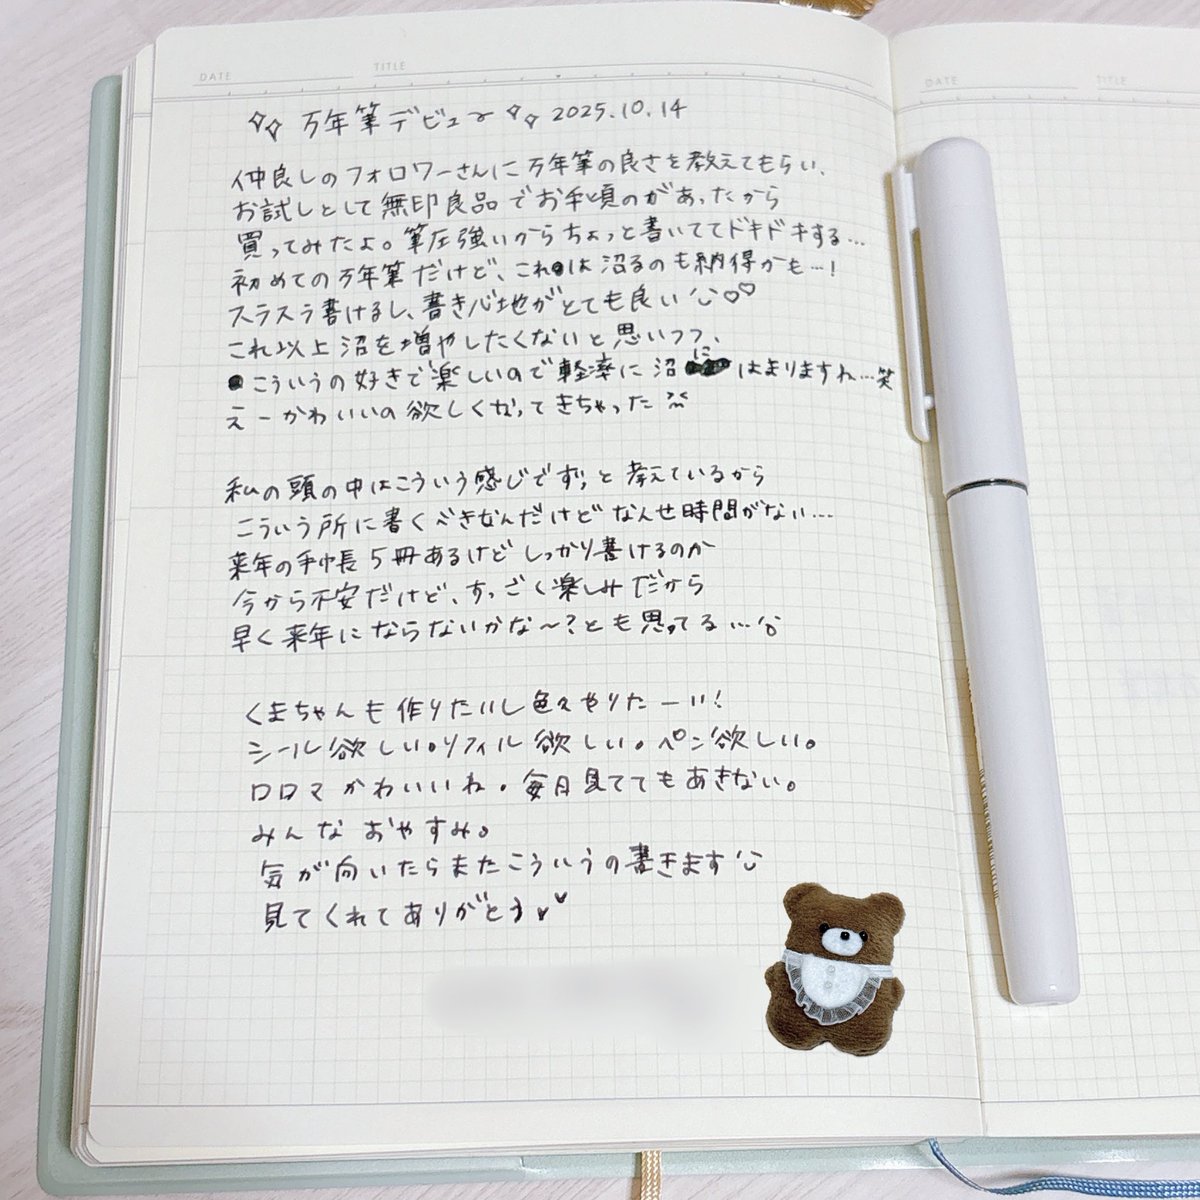 DATE TITLE
万年筆デビュー 2025.10.14
仲良しのフォロワーさんに万年筆の良さを教えてもらい、
お試しとして無印良品でお手頃のがあったから
買ってみたよ。筆圧強いからちょっと書いててドキドキする…
初めての万年筆だけど、これは沼るのも納得かも…!
スラスラ書けるし、書き心地がとても良い♡♡
これ以上沼を増やしたくないと思いつつ、
こういうの好きで楽しいので軽率に沼にはまりますね…笑
えーかわいいの欲しくなってきちゃった
私の頭の中はこういう感じでずっと考えているから
こういう所に書くべきなんだけどなんせ時間がない…
来年の手帳5冊あるけどしっかり書けるのか
今から不安だけど、すっごく楽しみだから
早く来年にならないかな〜?とも思ってる…
くまちゃんも作りたいし色々やりたーい!
シール欲しい。リフィル欲しい。ペン欲しい。
ロロマかわいいね。毎日見ててもあきない。
みんなおやすみ。
気が向いたらまたこういうの書きます
見てくれてありがとう
DATE TITLE